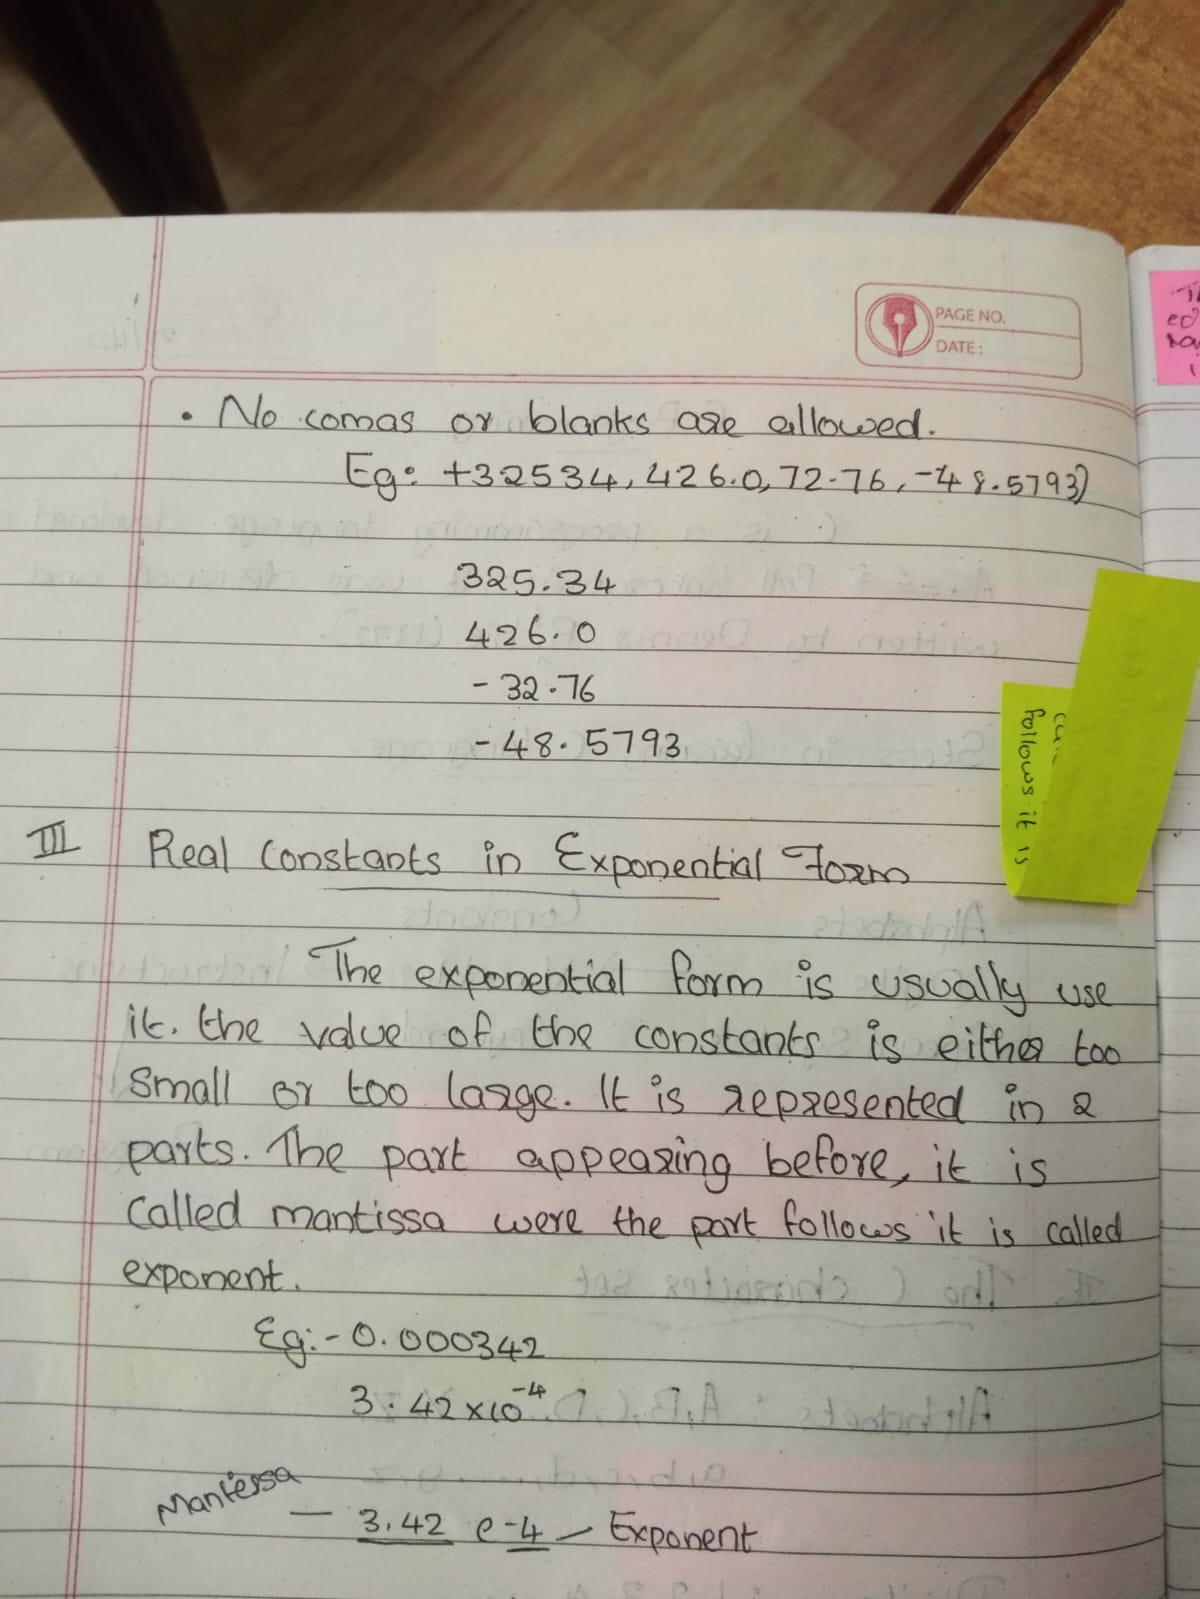 PAGE NO.
DATE:
• No comas or blanks are allowed.
Eg: +32534, 426.0, 72.76, -48.5793)
325.34
426.0
- 32.76
- 48.5793
III Real Constants in Exponential Form
The exponential form is usually use
it. the value of the constants is either too
small or too large. It is represented in 2
parts. The part appearing before, it is
called mantissa were the part follows it is called
exponent.
Eg:- 0.000342
3.42 x 10⁻⁴
Mantissa — 3.42 e-4 — Exponent
follows it is